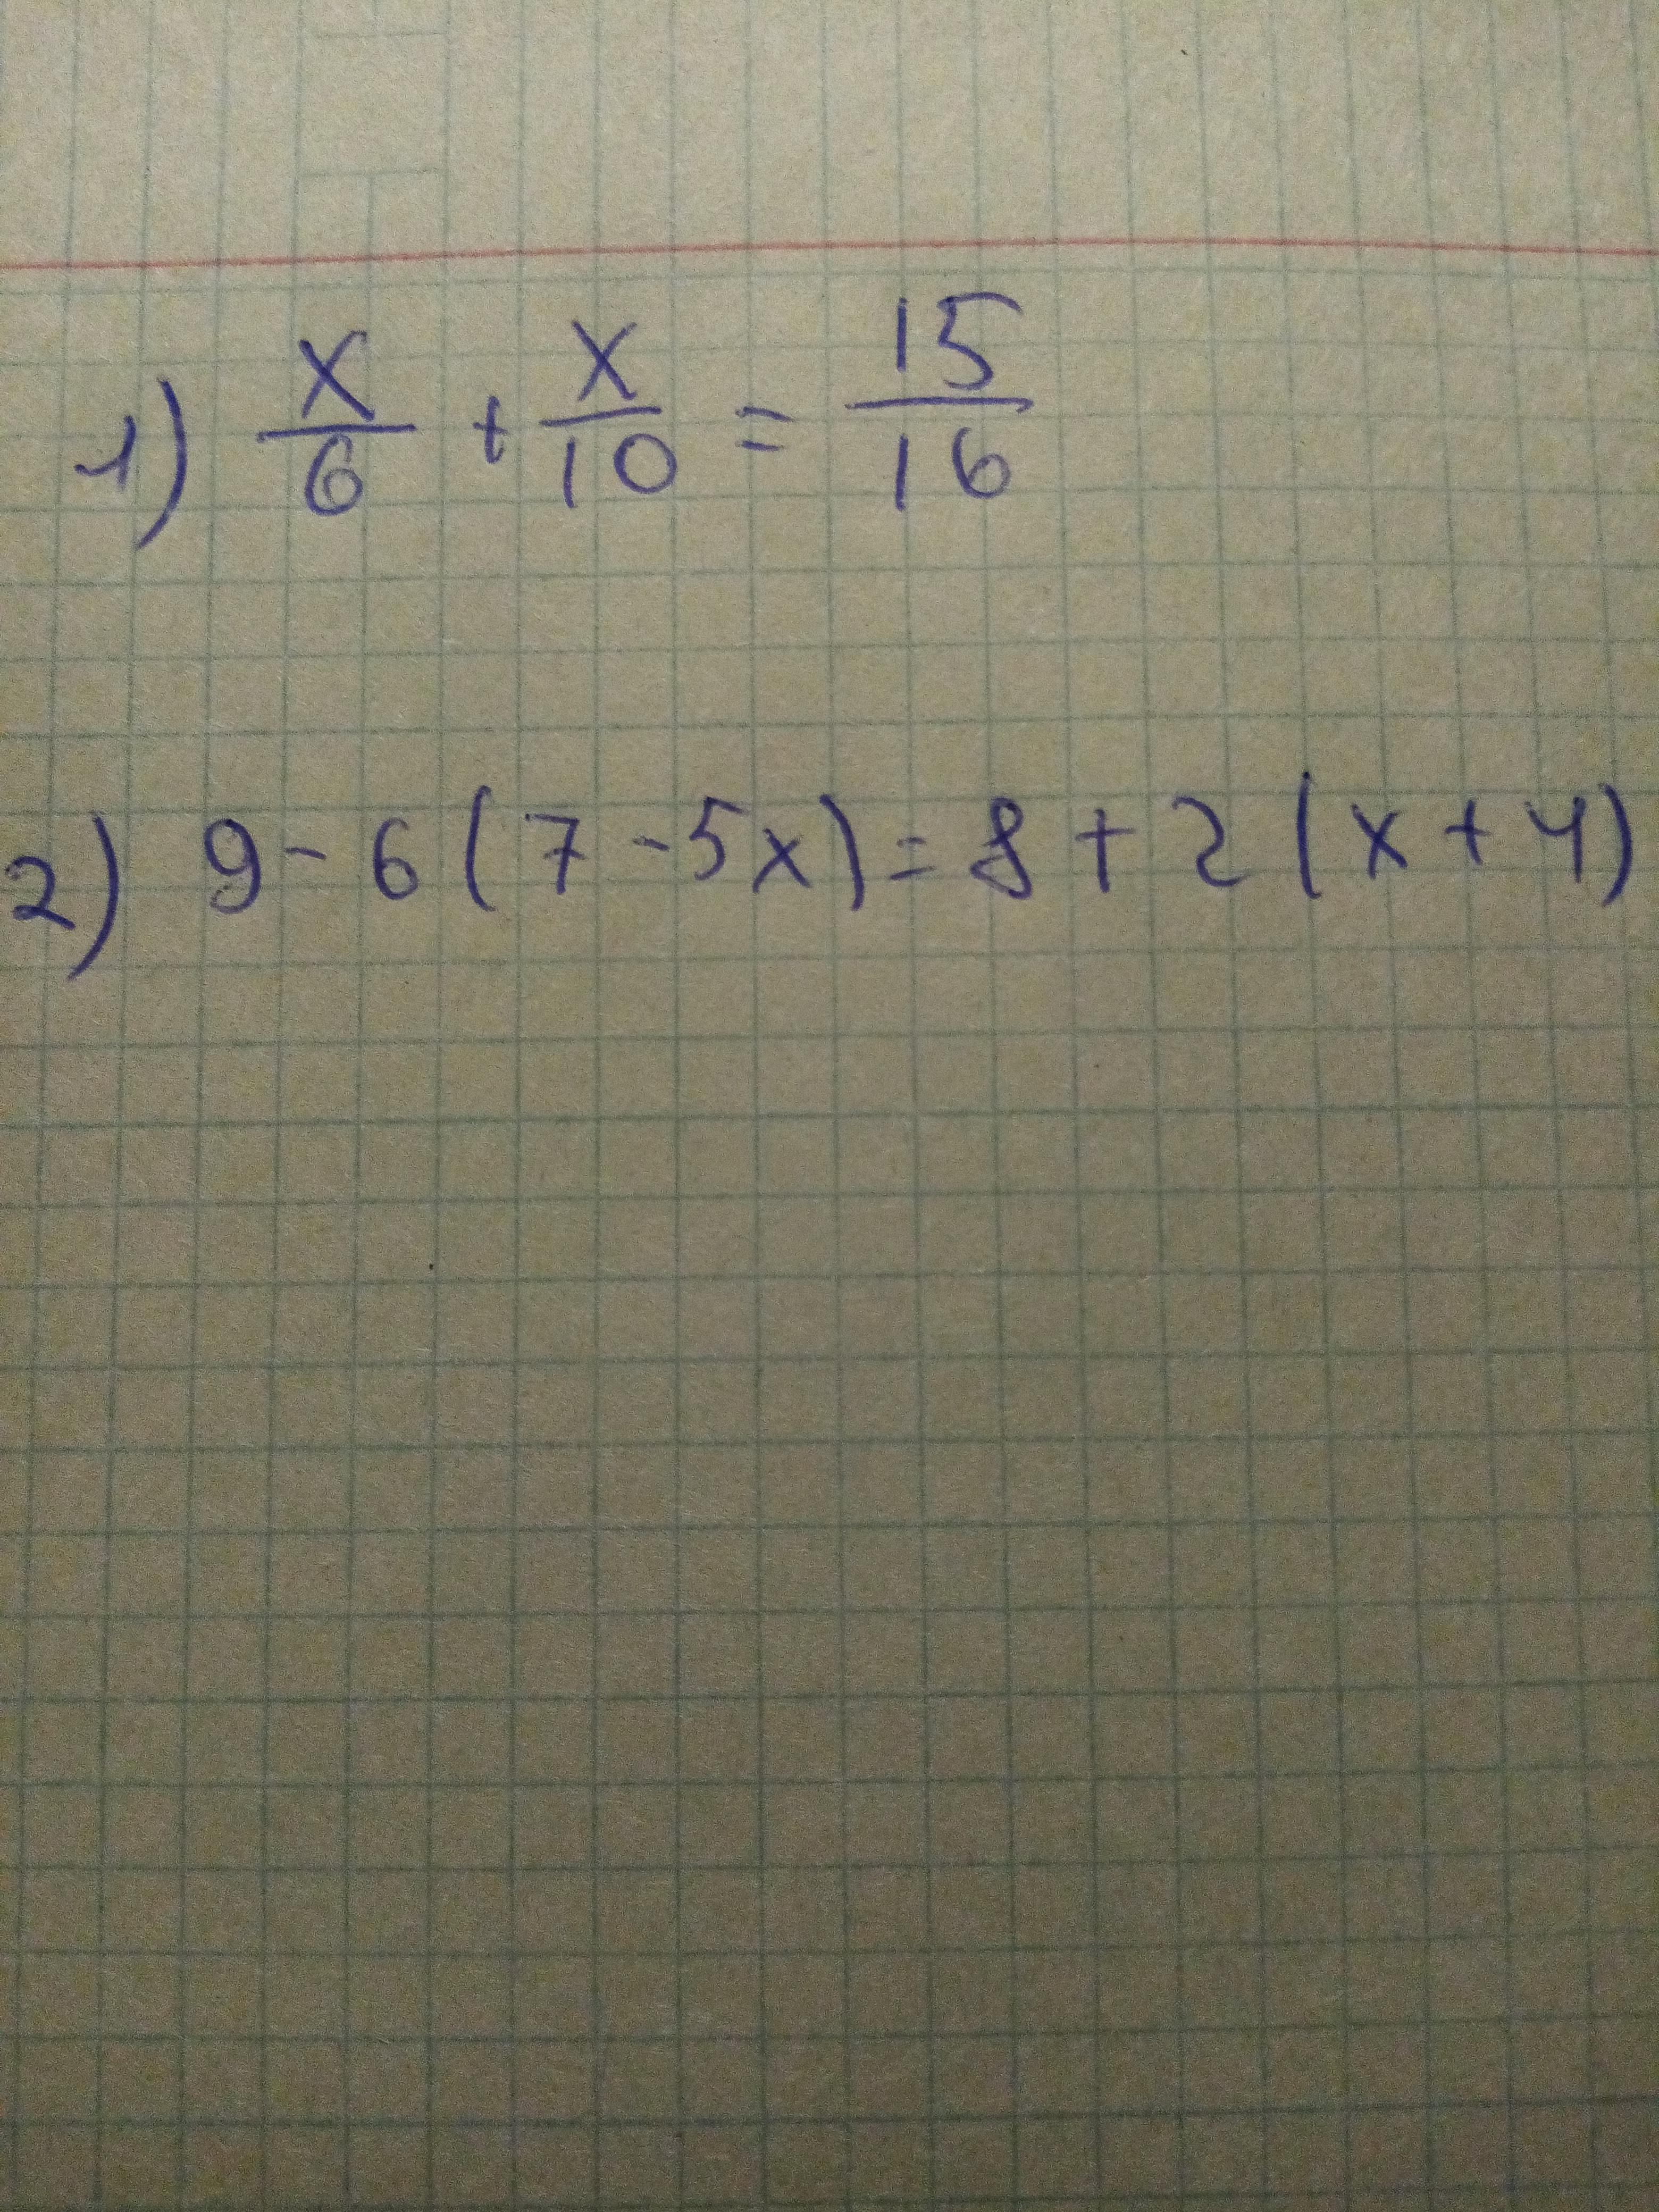 1) x/6 + x/10 = 15/16
2) 9 - 6 (7 - 5x) = 8 + 2 (x + 4)